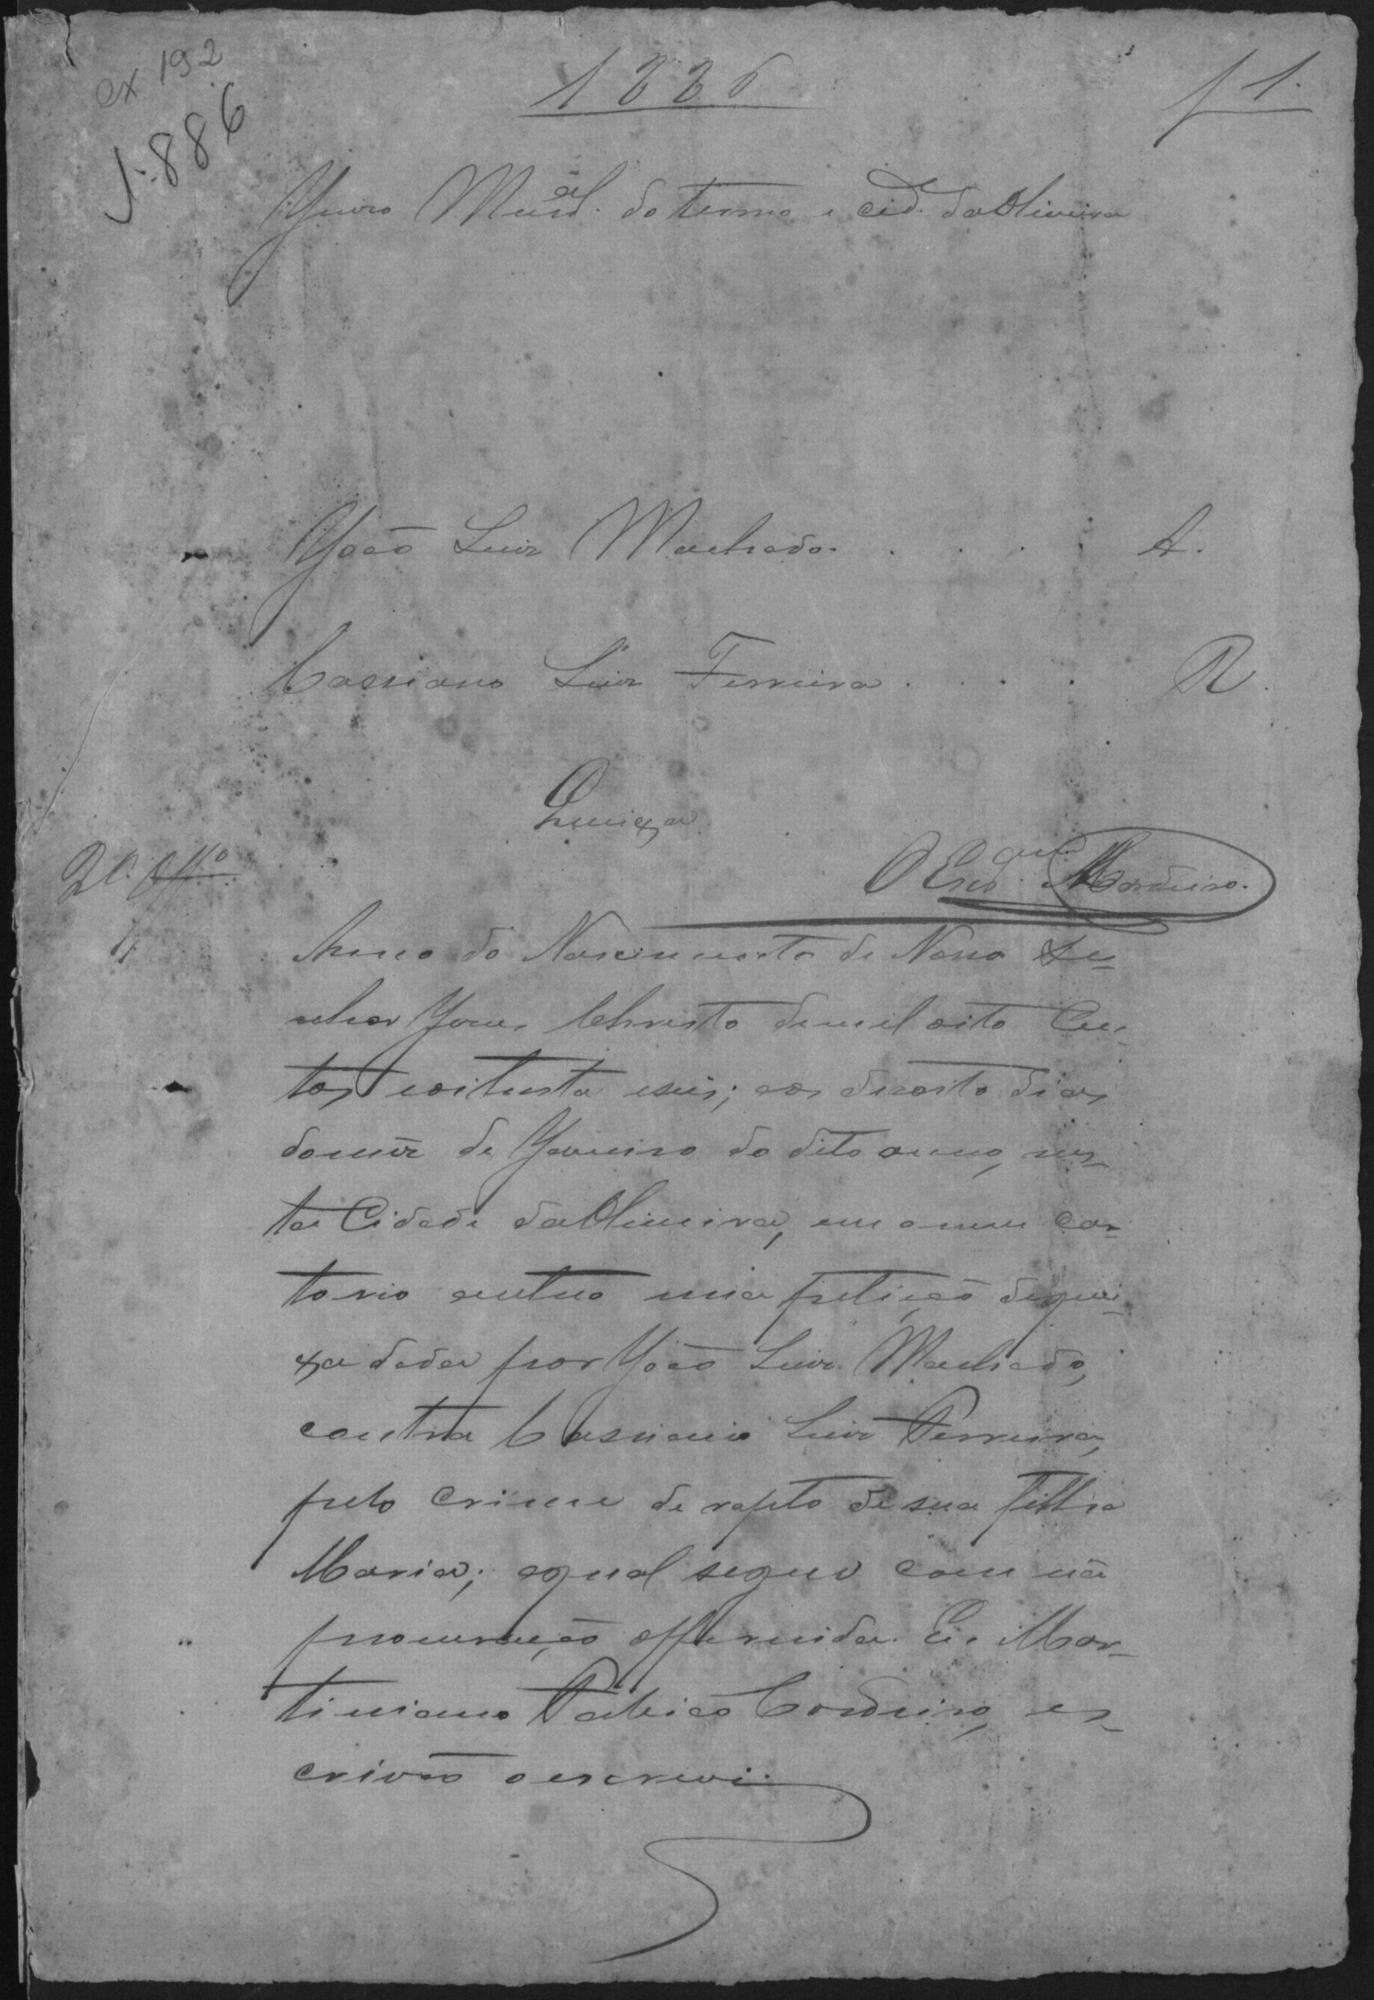 cx 192
J. 886
1886
f 1.
Juizo Mun.al do termo e Cid.e da Oliveira
João Luiz Machado. . . . . A.
Cassiano Luiz Ferreira . . . . R.
Queixa
2º. Off.º
O Escr.am Cordeiro.
Anno do Nascimento de Nosso Se-
nhor Jesus Christo de mil oito Cen-
tos e oitenta e seis; aos dezoito dias
do mêz de Janeiro do dito anno, nes-
ta Cidade da Oliveira, em o meu car-
torio autuo uma petição de quei-
xa dada por João Luiz Machado,
contra Cassiano Luiz Ferreira,
pelo crime de rapto de sua filha
Maria; e qual segue com uã
procuração offerecida. Eu Mar-
tiniano Cordeiro, es-
crivão o escrevi.